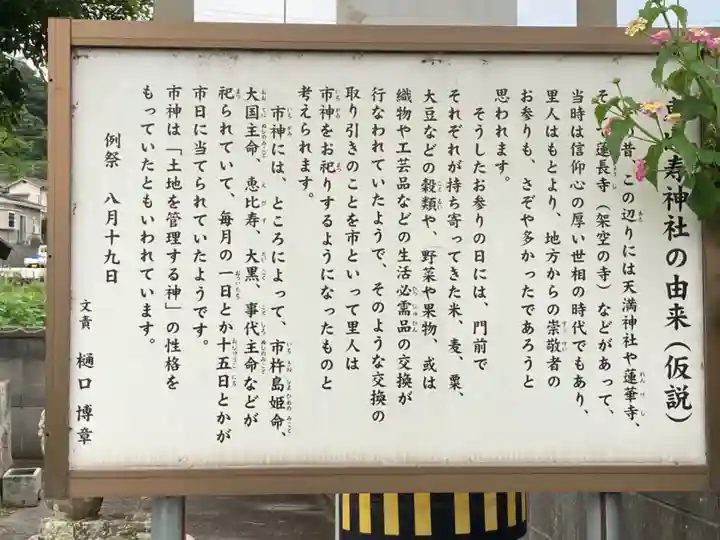 寿神社の由来(仮説)
昔、この辺りには天満神社や蓮華寺、
蓮長寺(架空の寺)などがあって、
当時は信仰心の厚い世相の時代でもあり、
里人はもとより、地方からの崇敬者の
お参りも、さぞや多かったであろうと
思われます。
そうしたお参りの日には、門前で
それぞれが持ち寄ってきた米、麦、粟、
大豆などの穀類や、野菜や果物、或は
織物や工芸品などの生活必需品の交換が
行なわれていたようで、そのような交換の
取り引きのことを市といって里人は
市神をお祀りするようになったものと
考えられます。
市神には、ところによって、市杵島姫命、
大国主命、恵比寿、大黒、事代主命などが
祀られていて、毎月の一日とか十五日とかが
市日に当てられていたようです。
市神は「土地を管理する神」の性格を
もっていたともいわれています。
例祭 八月十九日
文責 樋口博章